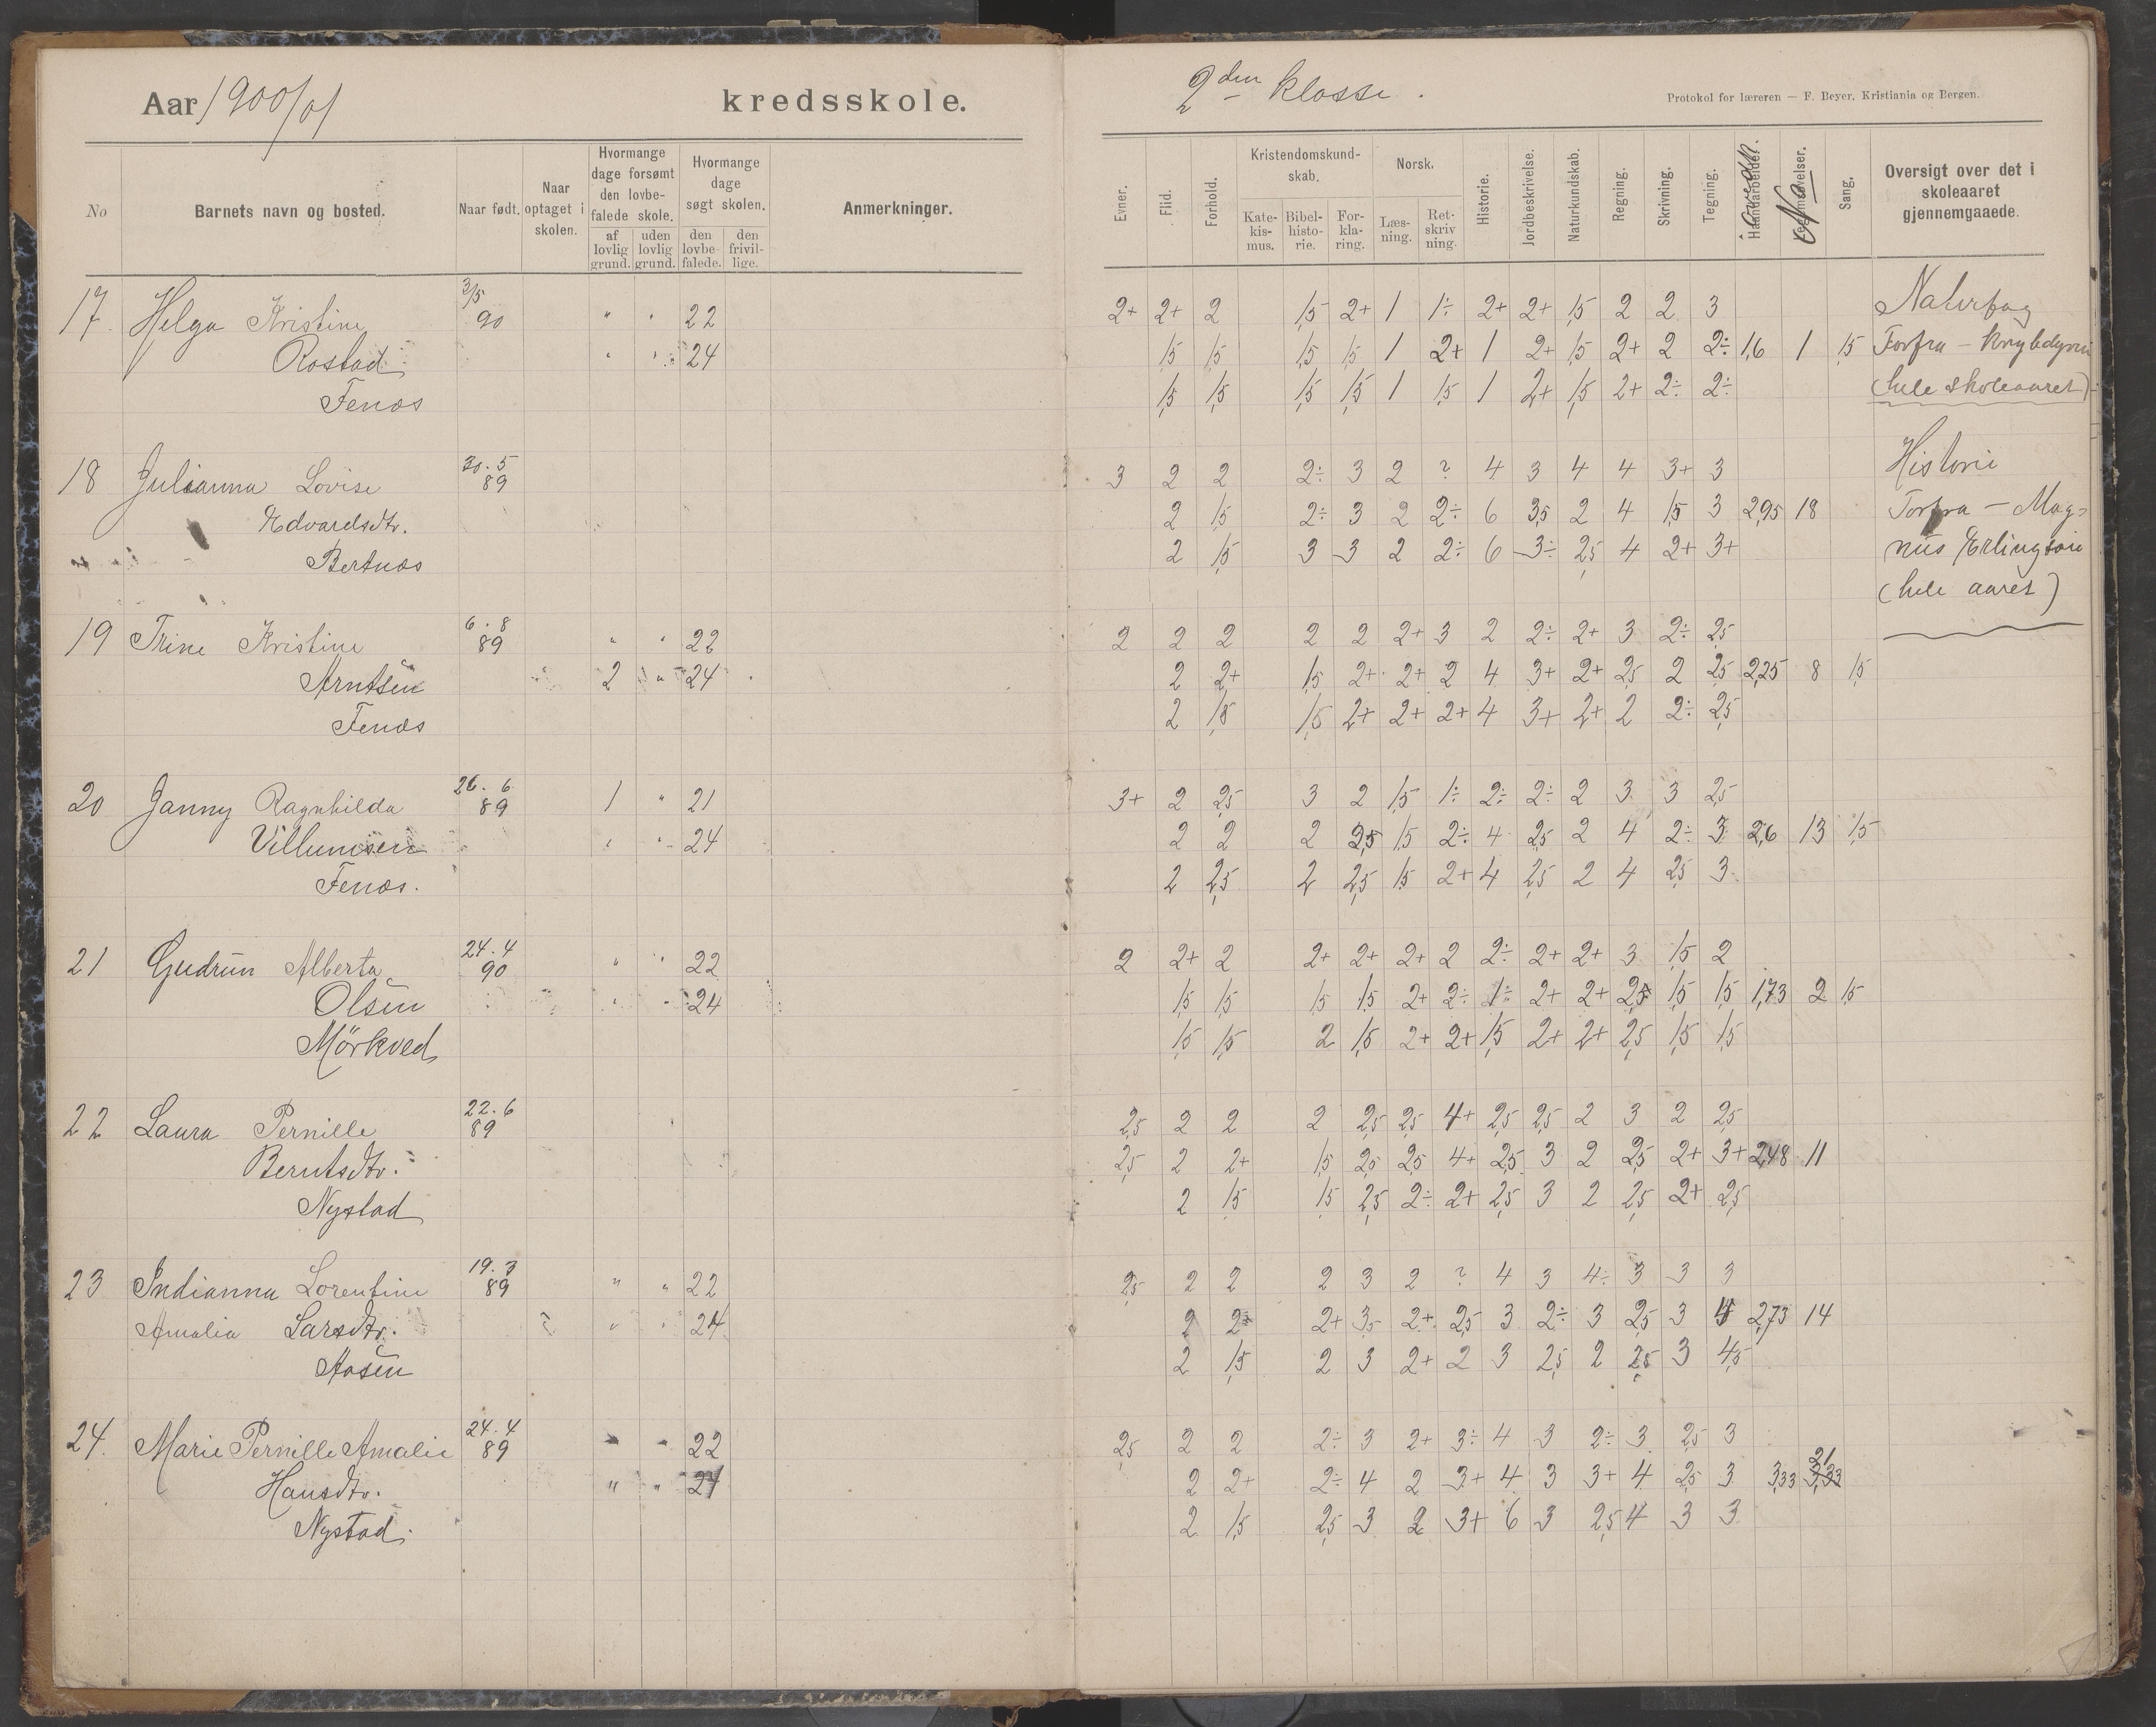 Aar 1900/01 kredsskole.
2den klasse.
Protokol for læreren — F. Beyer, Kristiania og Bergen.
No
Barnets navn og bosted.
Naar født.
Naar optaget i skolen.
Hvormange dage forsømt den lovbefalede skole.
af lovlig grund.
uden lovlig grund.
Hvormange dage søgt skolen.
den lovbefalede.
den frivillige.
Anmerkninger.
Evner.
Flid.
Forhold.
Kristendomskundskab.
Katekismus.
Bibelhistorie.
Forklaring.
Norsk.
Læsning.
Retskrivning.
Historie.
Jordbeskrivelse.
Naturkundskab.
Regning.
Skrivning.
Tegning.
Haandarbeide.
No
Sang.
Oversigt over det i skoleaaret gjennemgaaede.
17. Helga Kristine 3/5 90 " " 22 2+ 2+ 2 1,5 2+ 1 1÷ 2+ 2+ 1,5 2 2 3 Naturfag
Rostad " " 24 1,5 1,5 1,5 1,5 1 2+ 1 2+ 1,5 2+ 2 2÷ 1,6 1 1,5 Forfra — Krybdyrene
Fenes 1,5 1,5 1,5 1,5 1 1,5 1 2+ 1,5 2+ 2÷ 2÷ (hele skoleaaret)
18 Julianna Lovise 30.5 89 3 2 2 2÷ 3 2 ? 4 3 4 4 3+ 3 Historie
Edvardsdtr. 2 1,5 2÷ 3 2 2÷ 6 3,5 2 4 1,5 3 2,95 18 Forfra — Mag-
Bertnes 2 1,5 3 3 2 2÷ 6 3÷ 2,5 4 2+ 3+ nus Erlingson
(hele aaret)
19 Trine Kristine 6.8 89 " " 22 2 2 2 2 2 2+ 3 2 2÷ 2+ 3 2÷ 2,5
Arntsen 2 " 24 2 2+ 1,5 2+ 2+ 2 4 3+ 2+ 2,5 2 2,5 2,25 8 1,5
Fenes 2 1,5 1,5 2+ 2+ 2+ 4 3+ 2+ 2 2÷ 2,5
20 Janny Ragnhilda 26.6 89 1 " 21 3+ 2 2,5 3 2 1,5 1÷ 2÷ 2÷ 2 3 3 2,5
Villumsen " " 24 2 2 2 2,5 1,5 2÷ 4 2,5 2 4 2÷ 3 2,6 13 1,5
Fenes. 2 2,5 2 2,5 1,5 2+ 4 2,5 2 4 2,5 3
21 Gudrun Alberta 24.4 90 " " 22 2 2+ 2 2+ 2+ 2+ 2 2÷ 2+ 2+ 3 1,5 2
Olsen " " 24 1,5 1,5 1,5 1,5 2+ 2÷ 1÷ 2+ 2+ 2,5 1,5 1,5 1,73 2 1,5
Mörkved 1,5 1,5 2 1,5 2+ 2+ 1,5 2+ 2+ 2,5 1,5 1,5
22 Laura Pernille 22.6 89 2,5 2 2 2 2,5 2,5 4+ 2,5 2,5 2 3 2 2,5
Berntsdtr. 2,5 2 2+ 1,5 2,5 2,5 4+ 2,5 3 2 2,5 2+ 3+ 2,48 11
Nystad 2 1,5 1,5 2,5 2÷ 2+ 2,5 3 2 2,5 2+ 2,5
23 Indianna Lorentine 19.3 89 " " 22 2,5 2 2 2 3 2 ? 4 3 4÷ 3 3 3
Amalia Larsdtr. " " 24 2 2÷ 2+ 3,5 2+ 2,5 3 2÷ 3 2,5 3 4 2,73 14
Aasen 2 1,5 2 3 2+ 2 3 2,5 2 2,5 3 4,5
24. Marie Pernille Amalie 24.4 89 " " 22 2,5 2 2 2÷ 3 2+ 3÷ 4 3 2÷ 3 2,5 3
Hansdtr. " " 24 2 2+ 2÷ 4 2 3+ 4 3 3+ 4 2,5 3 3,33 21
Nystad. 2 1,5 2,5 3 2 3+ 6 3 2,5 4 3 3